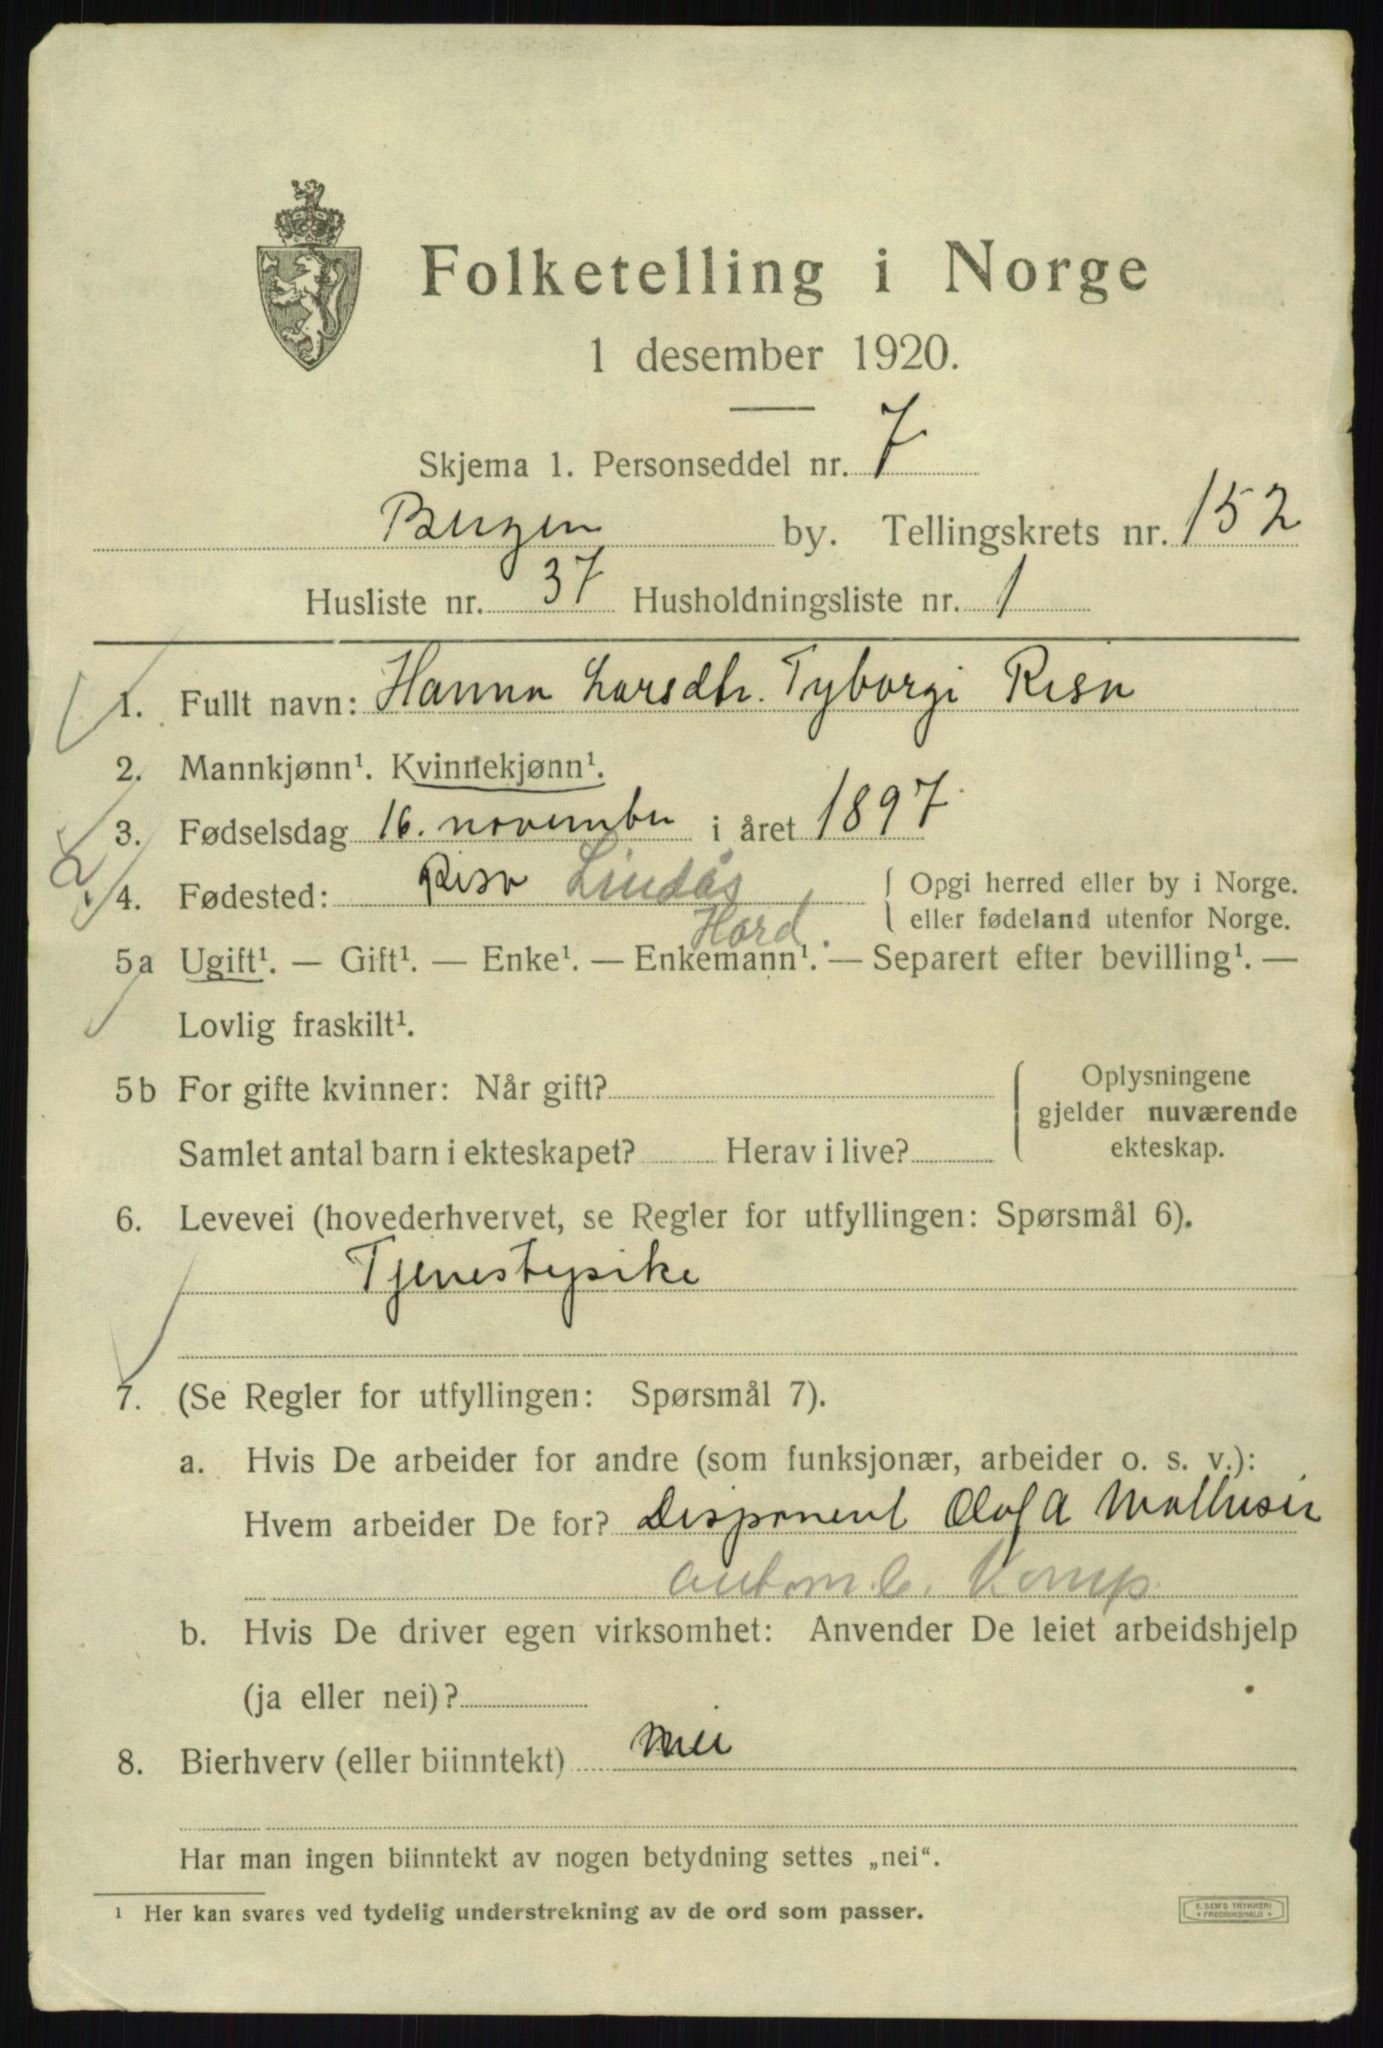 Folketelling i Norge
1 desember 1920.
Skjema 1. Personseddel nr. 7
Bergen by. Tellingskrets nr. 152
Husliste nr. 37 Husholdningsliste nr. 1
1. Fullt navn: Hanna Larsdtr. Tyborgi Risa
2. Mannkjønn¹. Kvinnekjønn¹.
3. Fødselsdag 16. november i året 1897
4. Fødested: Risa Lindås { Opgi herred eller by i Norge.
Hord. eller fødeland utenfor Norge.
5a Ugift¹. — Gift¹. — Enke¹. — Enkemann¹. — Separert efter bevilling¹. —
Lovlig fraskilt¹.
5b For gifte kvinner: Når gift? Oplysningene
gjelder nuværende
Samlet antal barn i ekteskapet? Herav i live? ekteskap.
6. Levevei (hovederhvervet, se Regler for utfyllingen: Spørsmål 6).
Tjenestepike
7. (Se Regler for utfyllingen: Spørsmål 7).
a. Hvis De arbeider for andre (som funksjonær, arbeider o. s. v.):
Hvem arbeider De for? Disponent Olaf A
Automb. Komp.
b. Hvis De driver egen virksomhet: Anvender De leiet arbeidshjelp
(ja eller nei)?
8. Bierhverv (eller biinntekt) Nei
Har man ingen biinntekt av nogen betydning settes „nei“.
¹ Her kan svares ved tydelig understrekning av de ord som passer.
E. SEM'S TRYKKERI
* FREDRIKSHALD *